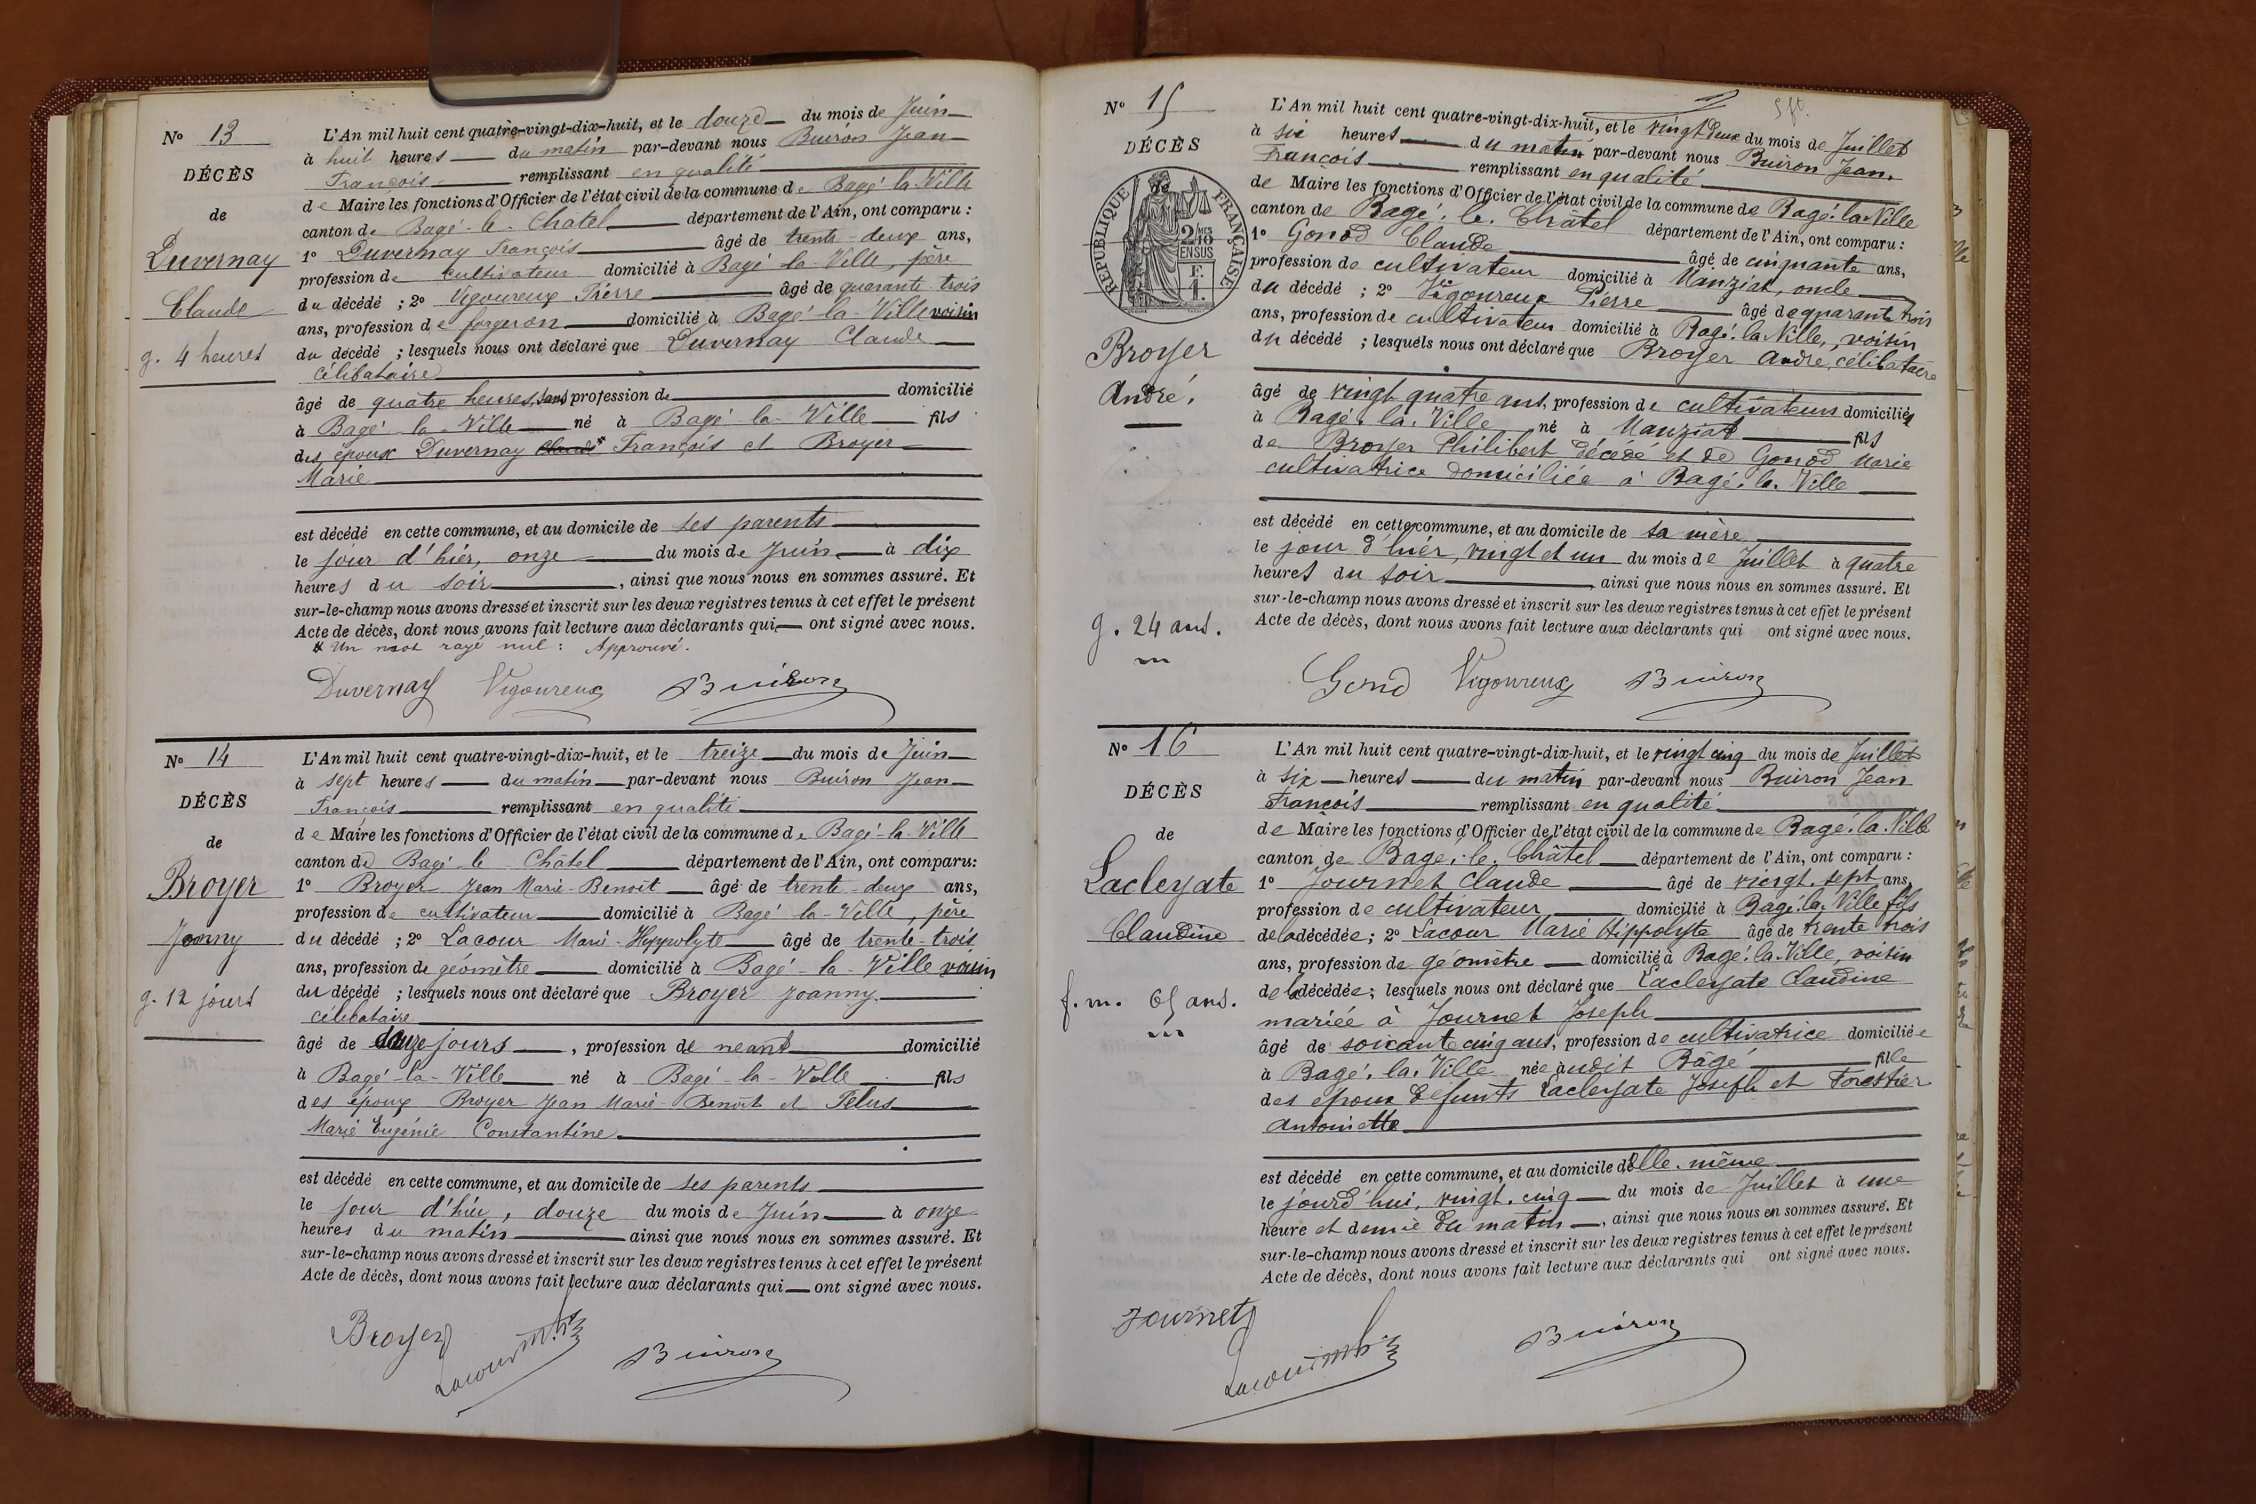 N° 13
DÉCÈS
de
Duvernay
Claude
g. 4 heures
L'An mil huit cent quatre-vingt-dix-huit, et le douze du mois de Juin
à huit heures du matin par-devant nous Buiron Jean
François remplissant en qualité
de Maire les fonctions d'Officier de l'état civil de la commune de Bagé-la-Ville
canton de Bagé-le-Châtel département de l'Ain, ont comparu :
1° Duvernay François âgé de trente-deux ans,
profession de cultivateur domicilié à Bagé-la-Ville, père
du décédé ; 2° Vigoureux Pierre âgé de quarante-trois
ans, profession de forgeron domicilié à Bagé-la-Ville voisin
du décédé ; lesquels nous ont déclaré que Duvernay Claude
célibataire
âgé de quatre heures, sans profession de domicilié
à Bagé-la-Ville né à Bagé-la-Ville fils
des époux Duvernay Claude* François et Broyer
Marie
est décédé en cette commune, et au domicile de ses parents
le jour d'hier, onze du mois de Juin à dix
heures du soir, ainsi que nous nous en sommes assuré. Et
sur-le-champ nous avons dressé et inscrit sur les deux registres tenus à cet effet le présent
Acte de décès, dont nous avons fait lecture aux déclarants qui ont signé avec nous.
* Un mot rayé nul : Approuvé.
Duvernay Vigoureux Buiron
N° 14
DÉCÈS
de
Broyer
Joanny
g. 12 jours
L'An mil huit cent quatre-vingt-dix-huit, et le treize du mois de Juin
à sept heures du matin par-devant nous Buiron Jean
François remplissant en qualité
de Maire les fonctions d'Officier de l'état civil de la commune de Bagé-la-Ville
canton de Bagé-le-Châtel département de l'Ain, ont comparu :
1° Broyer Jean Marie-Benoît âgé de trente-deux ans,
profession de cultivateur domicilié à Bagé-la-Ville, père
du décédé ; 2° Lacour Marie-Hyppolyte âgé de trente-trois
ans, profession de géomètre domicilié à Bagé-la-Ville voisin
du décédé ; lesquels nous ont déclaré que Broyer Joanny
célibataire
âgé de douze jours, profession de neant domicilié
à Bagé-la-Ville né à Bagé-la-Ville fils
des époux Broyer Jean Marie-Benoît et Pelus
Marie Eugénie Constantine
est décédé en cette commune, et au domicile de ses parents
le jour d'hier, douze du mois de Juin à onze
heures du matin ainsi que nous nous en sommes assuré. Et
sur-le-champ nous avons dressé et inscrit sur les deux registres tenus à cet effet le présent
Acte de décès, dont nous avons fait lecture aux déclarants qui ont signé avec nous.
Broyer Lacour Buiron
N° 15
DÉCÈS
RÉPUBLIQUE FRANÇAISE
2 MES 10 EN SUS
F. 1.
Broyer
André,
g. 24 ans.
L'An mil huit cent quatre-vingt-dix-huit, et le vingt deux du mois de Juillet
à six heures du matin par-devant nous Buiron Jean.
François remplissant en qualité
de Maire les fonctions d'Officier de l'état civil de la commune de Bagé-la-Ville
canton de Bagé-le-Châtel département de l'Ain, ont comparu :
1° Gonod Claude âgé de cinquante ans,
profession de cultivateur domicilié à Manziat, oncle
du décédé ; 2° Vigoureux Pierre âgé de quarante trois
ans, profession de cultivateur domicilié à Bagé-la-Ville, voisin
du décédé ; lesquels nous ont déclaré que Broyer André, célibataire
âgé de vingt quatre ans, profession de cultivateur domicilié
à Bagé-la-Ville né à Manziat fils
de Broyer Philibert décédé et de Gonod Marie
cultivatrice domiciliée à Bagé-la-Ville
est décédé en cette commune, et au domicile de sa mère
le jour d'hier, vingt et un du mois de Juillet à quatre
heures du soir ainsi que nous nous en sommes assuré. Et
sur-le-champ nous avons dressé et inscrit sur les deux registres tenus à cet effet le présent
Acte de décès, dont nous avons fait lecture aux déclarants qui ont signé avec nous.
Gonod Vigoureux Buiron
N° 16
DÉCÈS
de
Lacleyate
Claudine
f. m. 65 ans.
L'An mil huit cent quatre-vingt-dix-huit, et le vingt cinq du mois de Juillet
à six heures du matin par-devant nous Buiron Jean
François remplissant en qualité
de Maire les fonctions d'Officier de l'état civil de la commune de Bagé-la-Ville
canton de Bagé-le-Châtel département de l'Ain, ont comparu :
1° Journet Claude âgé de vingt-sept ans,
profession de cultivateur domicilié à Bagé-la-Ville fils
de la décédée ; 2° Lacour Marie Hippolyte âgé de trente trois
ans, profession de géomètre domicilié à Bagé-la-Ville, voisin
de la décédée ; lesquels nous ont déclaré que Lacleyate Claudine
mariée à Journet Joseph
âgé de soixante cinq ans, profession de cultivatrice domiciliée
à Bagé-la-Ville née audit Bâgé fille
des époux défunts Lacleyate Joseph et Forestier
Antoinette
est décédé en cette commune, et au domicile d'elle-même
le jourd'hui, vingt-cinq du mois de Juillet à une
heure et demie du matin, ainsi que nous nous en sommes assuré. Et
sur-le-champ nous avons dressé et inscrit sur les deux registres tenus à cet effet le présent
Acte de décès, dont nous avons fait lecture aux déclarants qui ont signé avec nous.
Journet Lacour Buiron